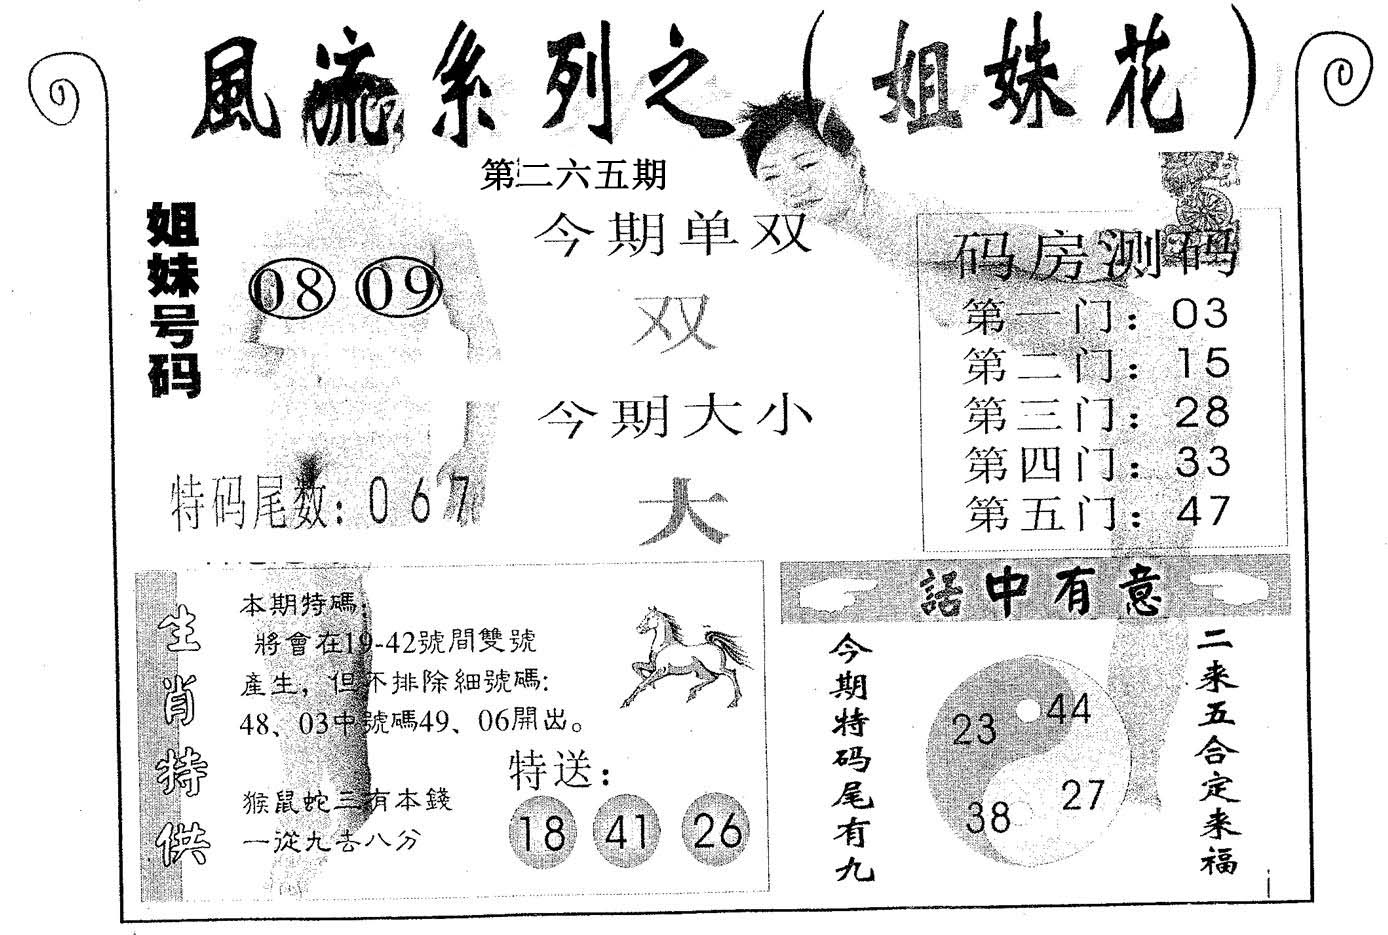 風流系列之（姐妹花）
第二六五期
姐妹号码
08 09
特码尾数：0 6 7
今期单双
双
今期大小
大
码房测码
第一门：03
第二门：15
第三门：28
第四门：33
第五门：47
生肖特供
本期特碼：
將會在19-42號間雙號
產生，但不排除細號碼：
48、03中號碼49、06開出。
猴鼠蛇三有本錢
一從九去八分
特送：
18 41 26
話中有意
今期特码尾有九
23 44
38 27
二来五合定来福